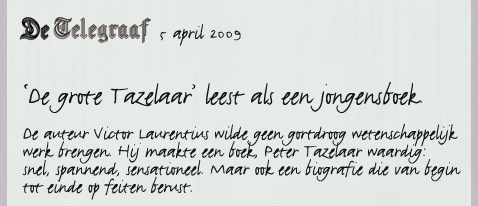 De Telegraaf 5 april 2009
'De grote Tazelaar' leest als een jongensboek.
De auteur Victor Laurentius wilde geen gortdroog wetenschappelijk
werk brengen. Hij maakte een boek, Peter Tazelaar waardig:
snel, spannend, sensationeel. Maar ook een biografie die van begin
tot einde op feiten berust.